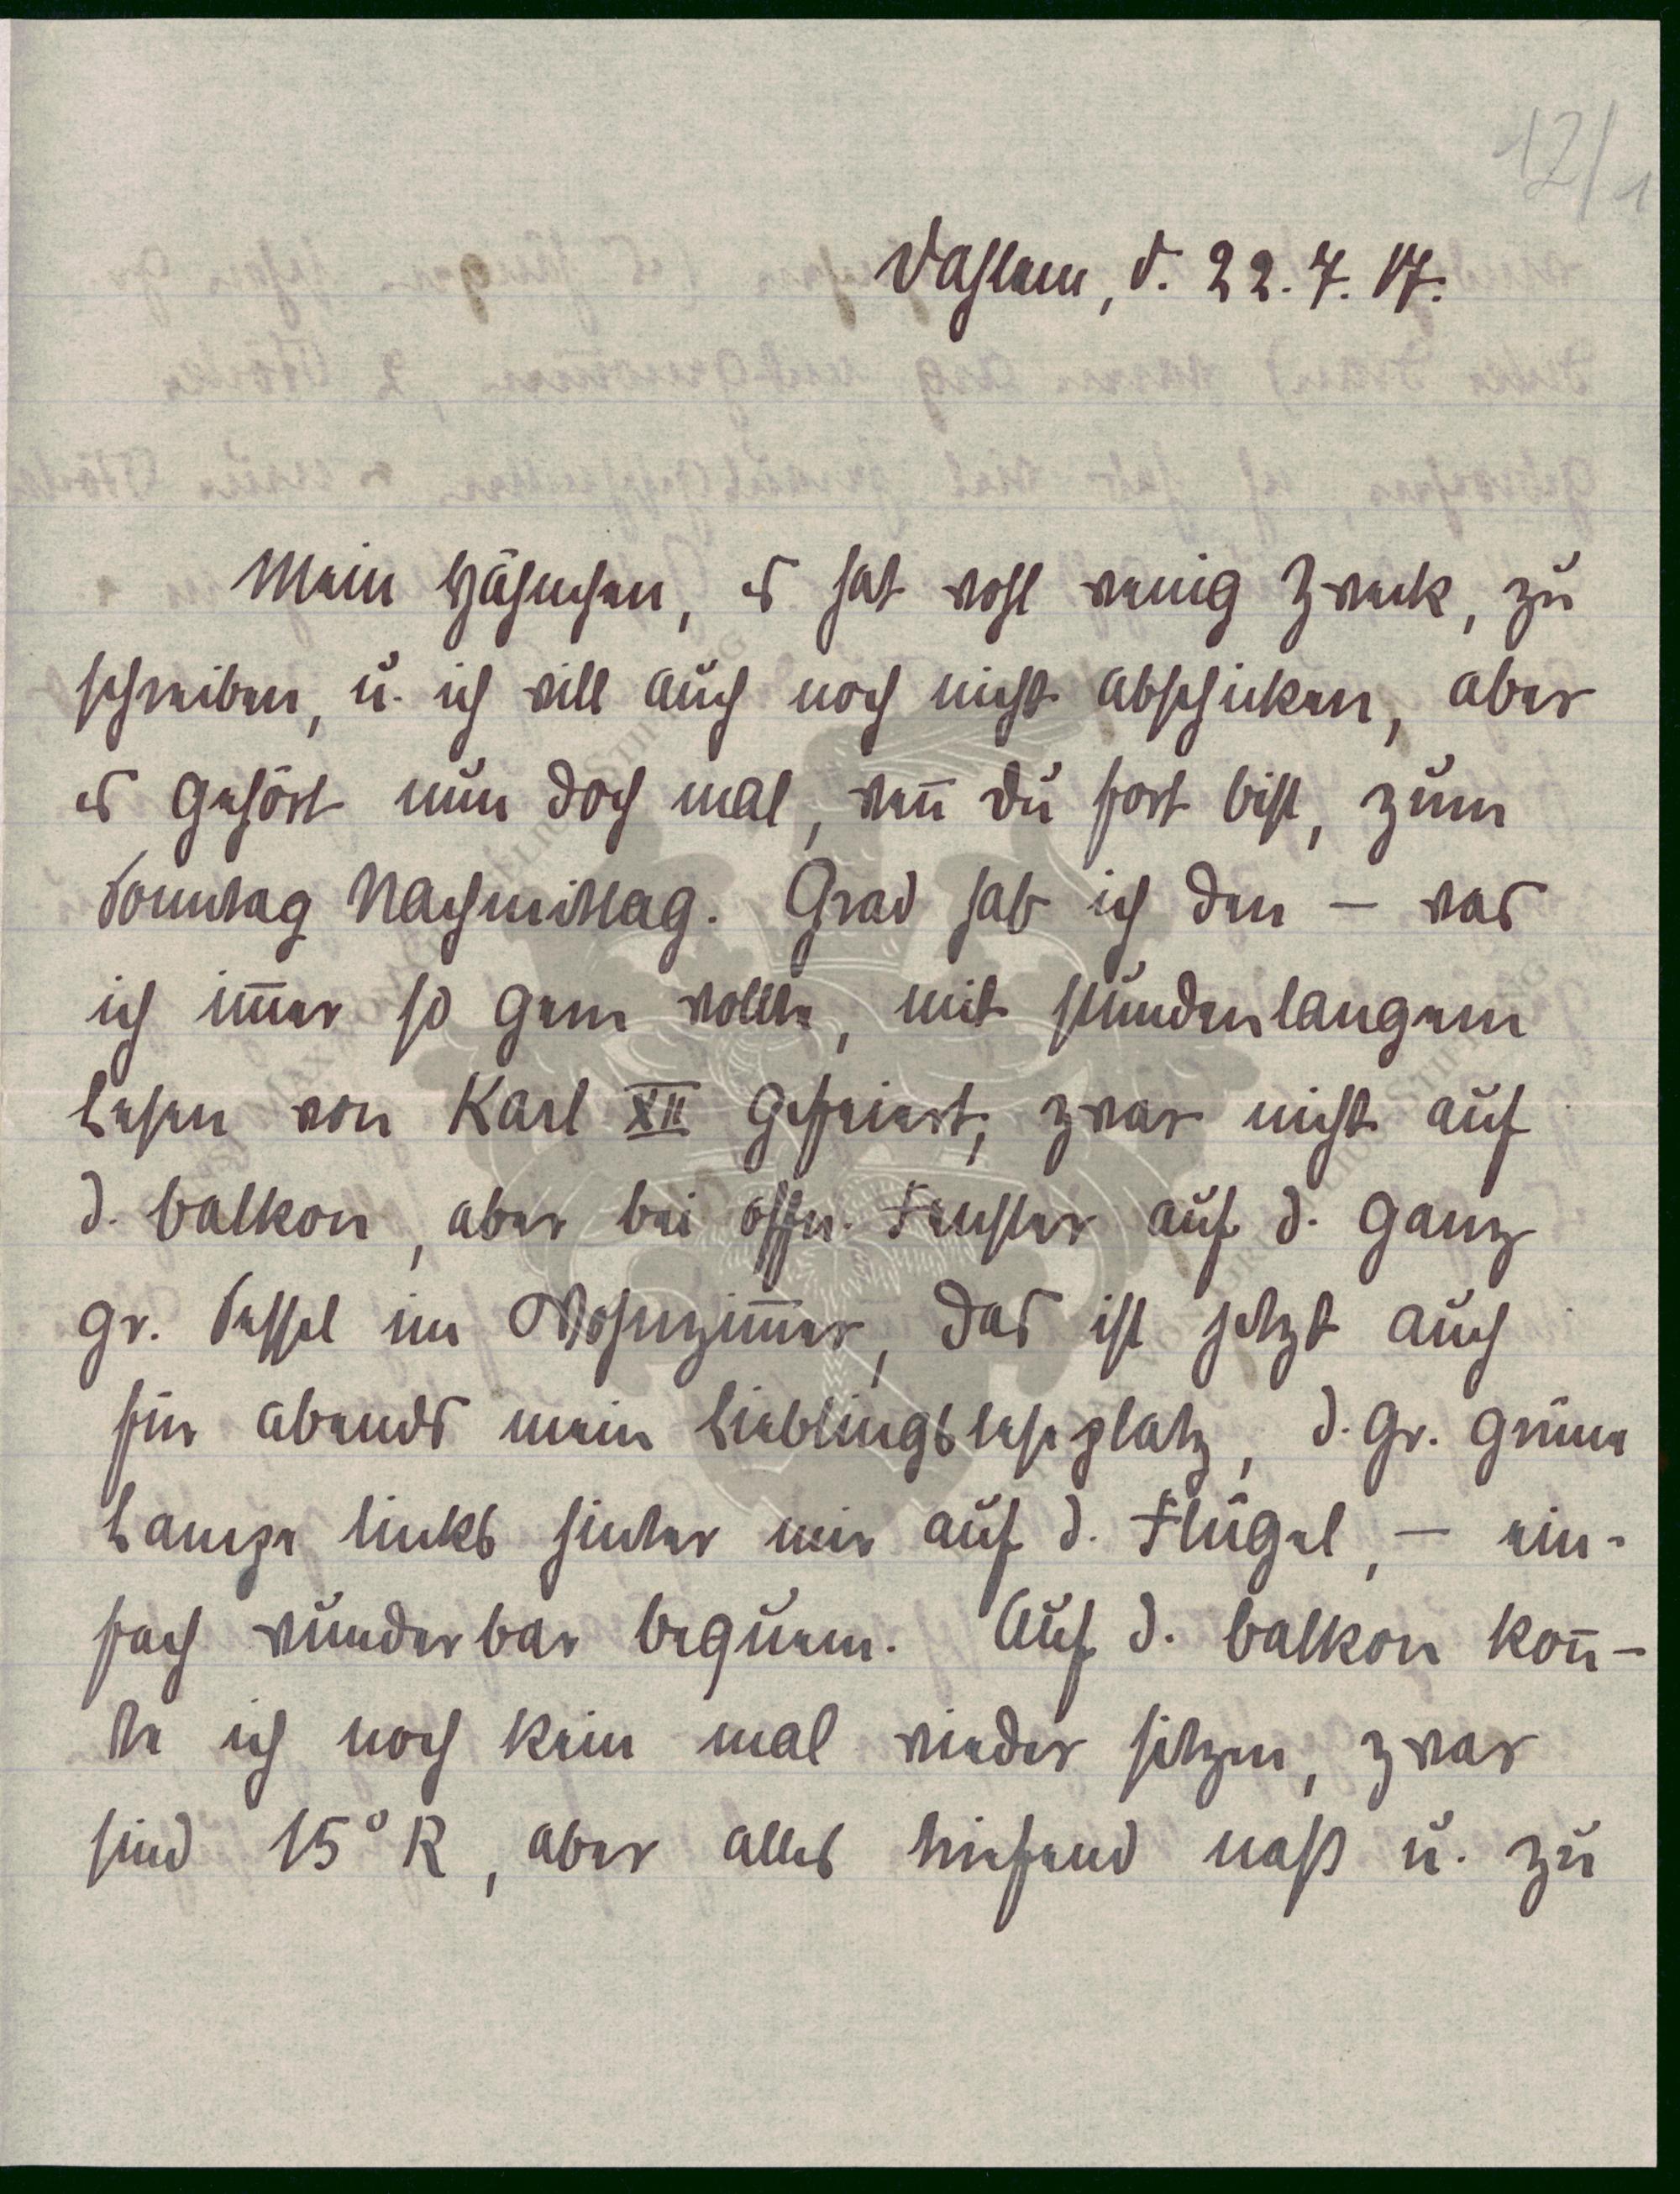 12/1
Dahlem, d. 22. 7. 17.
Mein Häschen, es hat wohl wenig Zweck, zu
schreiben, u. ich will auch noch nicht abschicken, aber
es gehört nun doch mal, weñ du fort bist, zum
Sonntag Nachmittag. Grad hab ich den – was
ich im̄er so gern wollte, mit stundenlangem
Lesen von Karl XII gefeiert; zwar nicht auf
d. Balkon, aber bei offn. Fenster auf d. ganz
gr. Sessel im Wohnzim̄er, das ist jetzt auch
für abends mein Lieblingsleseplatz, d. gr. grüne
Lampe links hinter mir auf d. Flügel, – ein-
fach wunderbar bequem. Auf d. Balkon koñ-
te ich noch kein mal wieder sitzen, zwar
sind 15° R, aber alles triefend naß u. zu